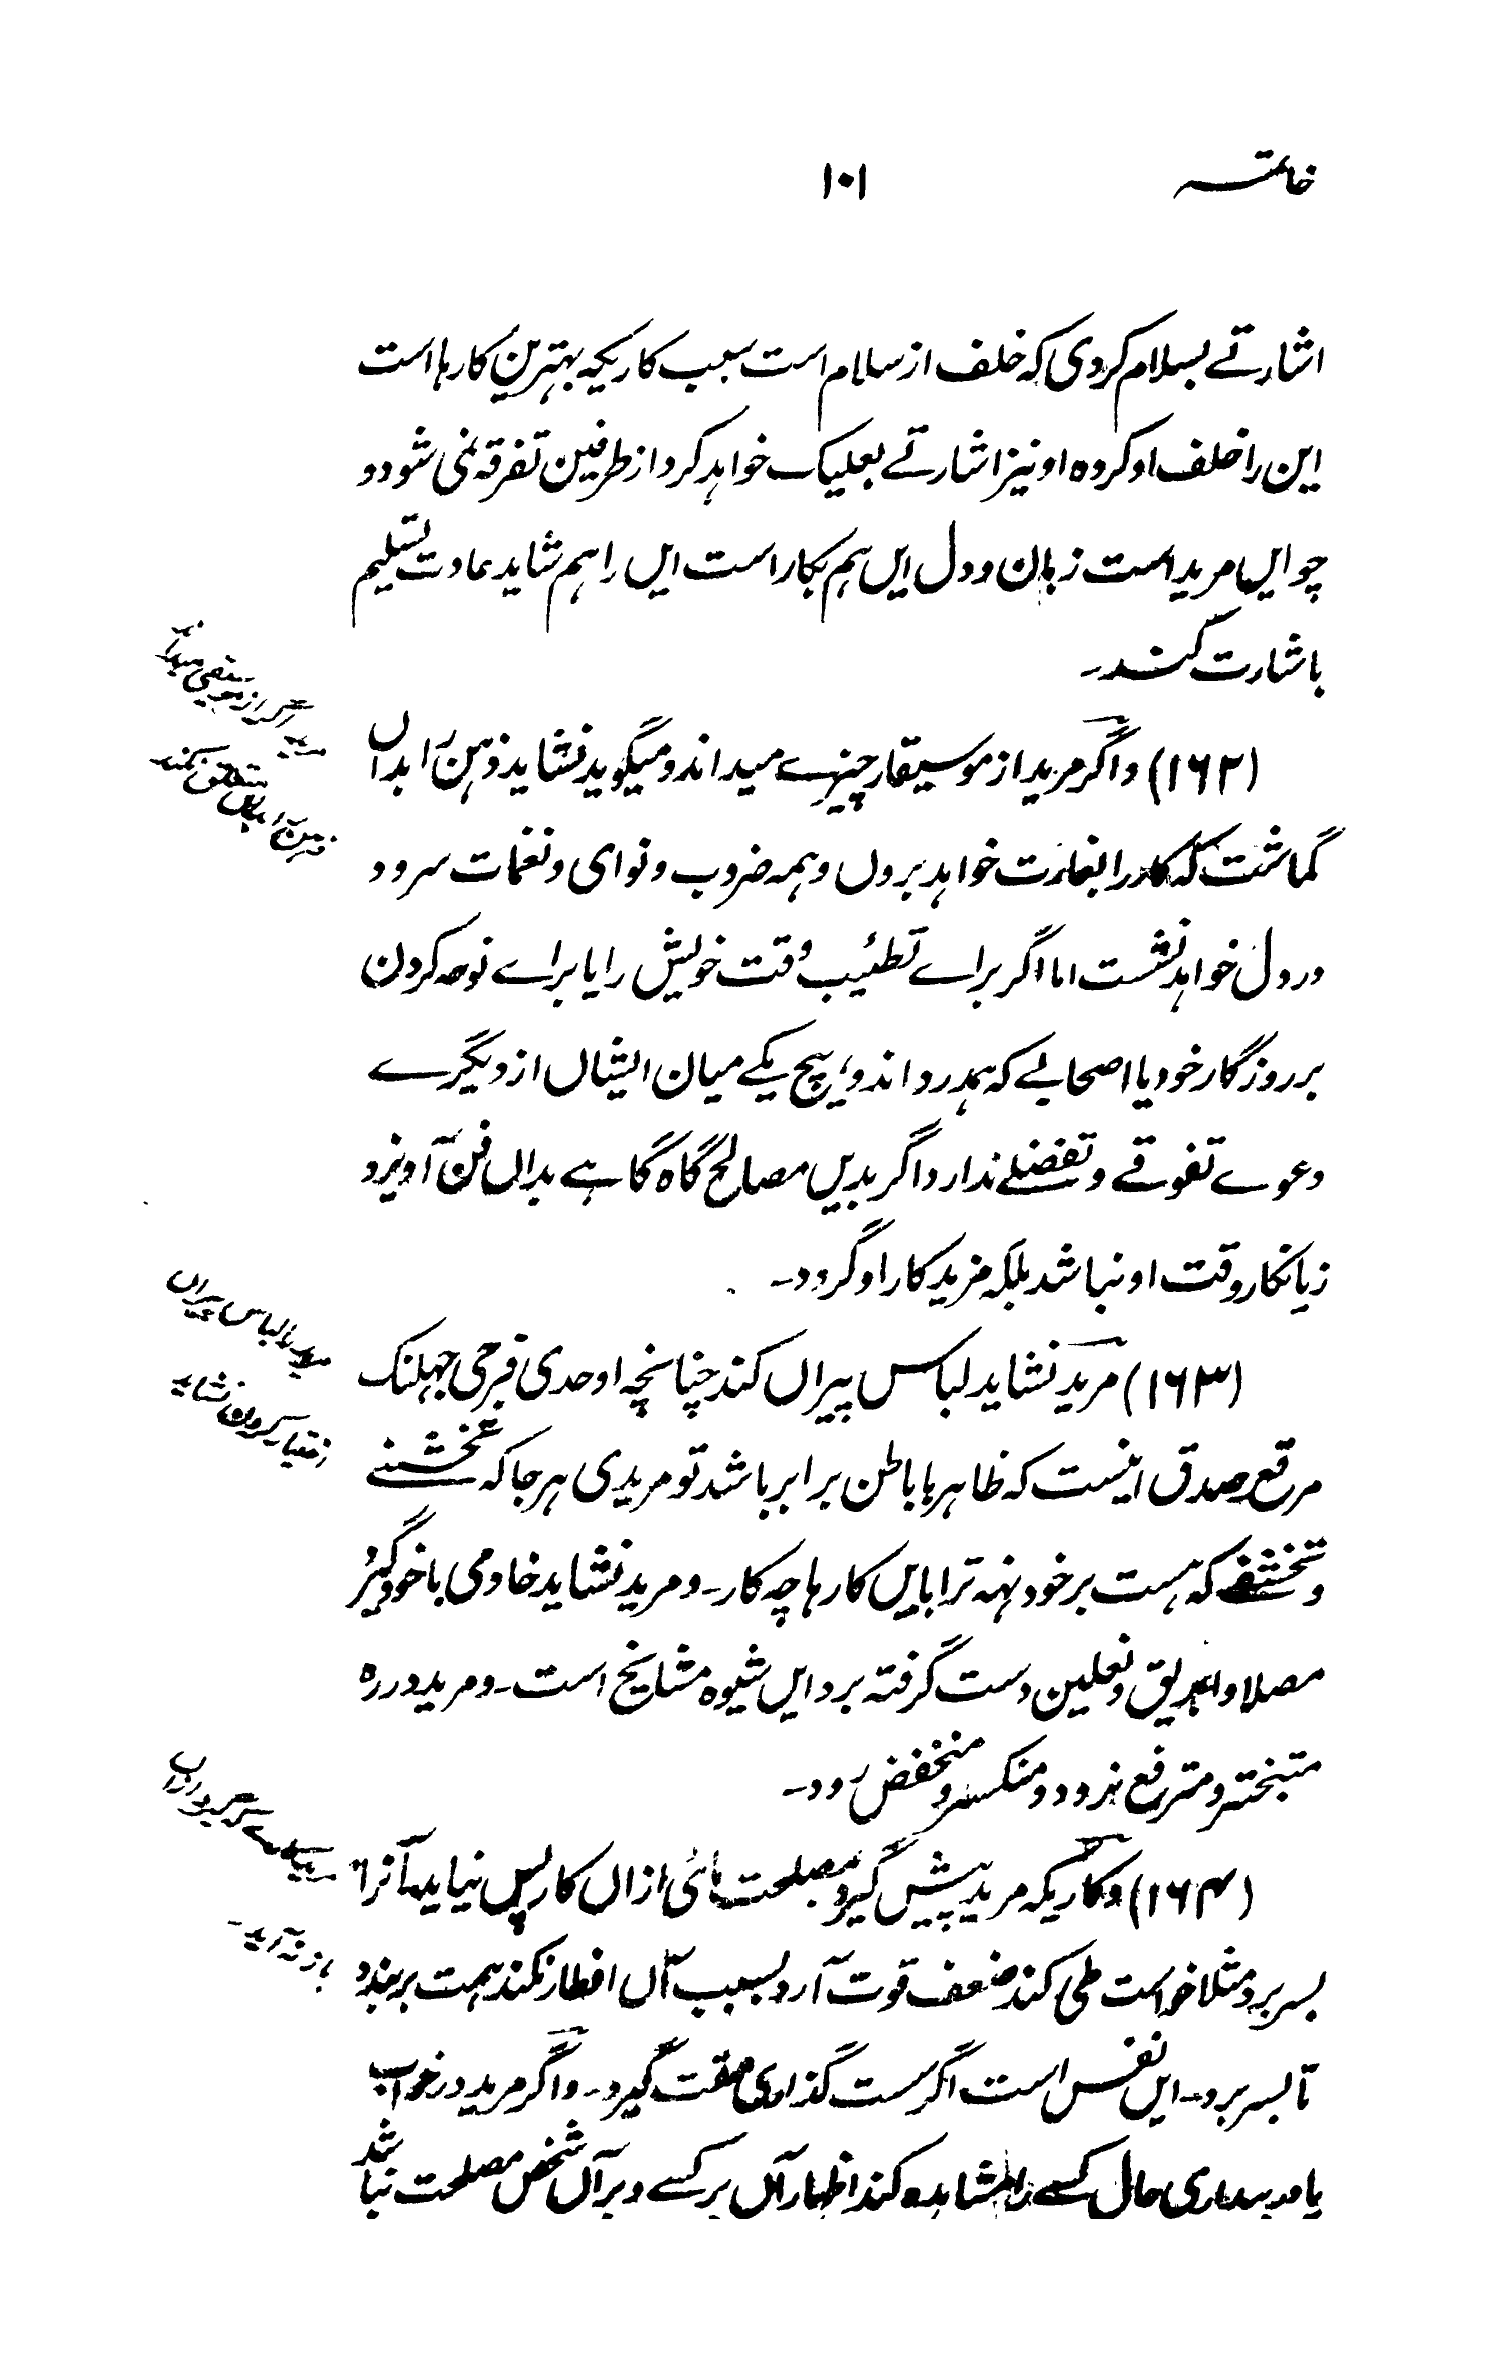 خاتمہ
۱۰۱
اشارتے بسلام کردی کہ خلف از سلام است سبب کاریکہ بہترین کارہا است
این را خلف او کردہ او نیز اشارتے بعلیک خواہد کرد از طرفین تفرقہ نمی شود و
چو ایں مرید است زبان و دل ایں ہم بکار است ایں را ہم شاید عادت تسلیم
باشارت کند۔
(۱۶۲) و اگر مرید از موسیقار چیزے میداند و میگوید نشاید ذہن را بداں
مرید اگر از موسیقی میداند
ذہن را بداں متعلق نکند
گماشت کہ کار را بغارت خواہد برد دل و ہمہ ضروب و نوای و نغمات سرود
در دل خواہد نشست اما اگر براے تطئیب وقت خویش را یا براے نوحہ کردن
بر روزگار خود یا اصحابے کہ ہمدرد اند و ہیچ یکے میان ایشاں از دیگرے
دعوے تفوقے و تفضلے ندارد اگر بدیں مصالح گاہ گاہے بداں فن آویزد
زیانکار وقت او نباشد بلکہ مزید کار او گردد۔
(۱۶۳) مرید نشاید لباس پیراں کند چنانچہ اوحدی فرجی جہلنک
مرید را لباس پیراں
اختیار کردن نشاید
مرقع صدق اینست کہ ظاہر با باطن برابر باشد تو مریدی ہر جا کہ تخشنے
و تخشفے کہ ہست بر خود نہہ ترا بایں کارہا چہ کار۔ و مرید نشاید خادمی با خود گیرد
مصلا و ابریق و نعلین دست گرفتہ برد ایں شیوہ مشایخ است۔ و مرید در رہ
متبختر و مترفع نرود و منکسر و منخفض رود۔
(۱۶۴) و کاریکہ مرید پیش گیرد مصلحت ہائی ازاں کار پس نیاید آنرا
کہ گیرد ازاں
باز نہ آید۔
بسر برد مثلا خواست طی کند ضعف قوت آرد بسبب آں افطار نکند ہمت بر بندد
تا بسر برد۔ ایں نفس است اگر سست گذاری صفت گیرد۔ و اگر مرید در خواب
یا در بیداری حال کسے را مشاہدہ کند اظہار آں بر کسے و بر آں شخص مصلحت نباشد